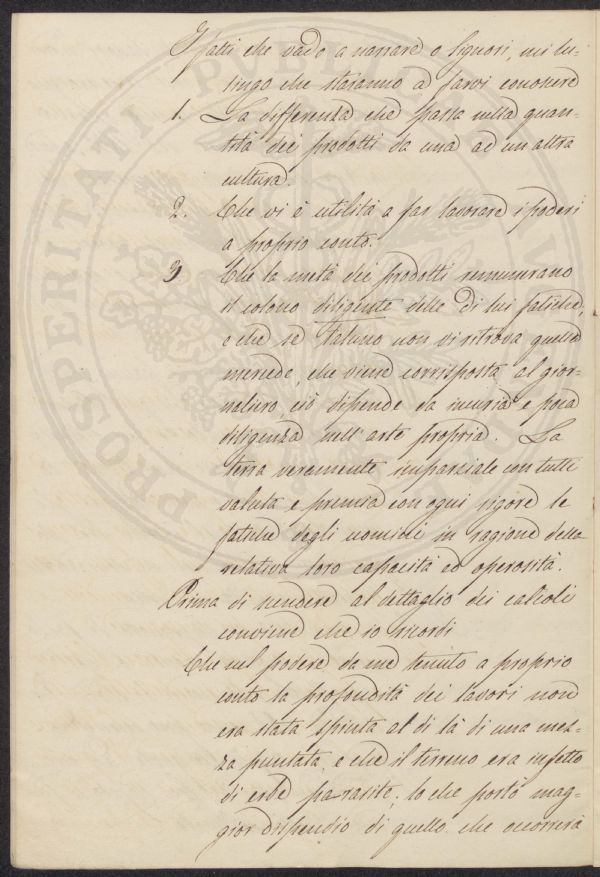 I fatti che vado a narrare o Signori, mi lu-
singo che staranno a farvi conoscere
1. La differenza che passa nella quan-
tità dei prodotti da una ad un altra
cultura.
2. Che vi è utilità a far lavorare i poderi
a proprio conto.
3. Che la metà dei prodotti rimunerano
il colono diligente delle di lui fatiche,
e che se taluno non vi ritrova quella
mercede, che viene corrisposta al gior-
naliero, ciò dipende da incuria e poca
diligenza nell'arte propria. La
terra veramente imparziale con tutti
valuta e premia con ogni rigore le
fatiche degli uomini in ragione della
relativa loro capacità ed operosità.
Prima di scendere al dettaglio dei calcoli
conviene che io ricordi
Che nel podere da me tenuto a proprio
conto la profondità dei lavori non
era stata spinta al di là di una mez-
za puntata, e che il terreno era infetto
di erbe parasite; lo che portò mag-
gior dispendio di quello che occorrerà
PROSPERITATI PUBLICAE